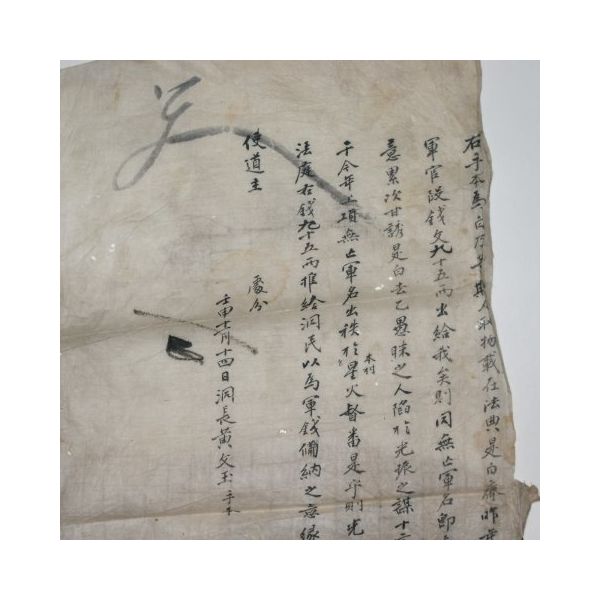 右手本爲白乃事段人取物載在法典是白齊昨年
軍官段錢文九十五兩出給我矣則同無亡軍名
意累次甘誘是白去乙愚昧之人陷於光振之謀十
于今年上項無亡軍名出秩於本村星火督番是乎則光
法庭右錢九十五兩推給洞民以爲軍錢備納之意緣
使道主 處分
壬申十月十四日洞長黃文玉手本